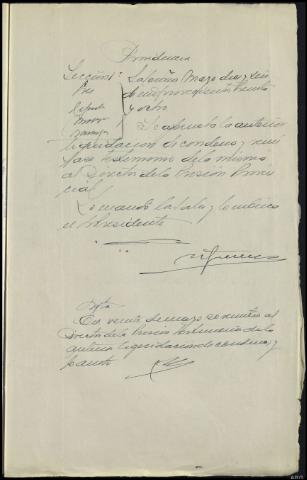 Providencia
Señores: La Coruña Marzo diez y seis
Pte de mil novecientos treinta
y ocho
Se aprueba la anterior
liquidacion de condena y remi
tase testimonio de la misma
al Director de la Prision Provin
cial
Lo mando la Sala y lo rubrica
el Presidente
Nota
En veinte de marzo se remite al
Director de la Prision testimonio de la
anterior liquidacion de condena y